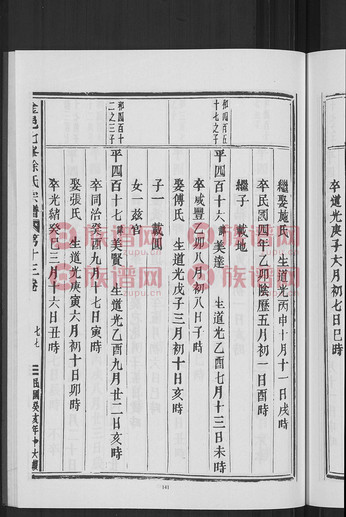 卒道光庚子六月初七日巳時
繼娶施氏　生道光丙申十月十一日戌時
卒民國四年乙卯陰歷五月初一日酉時
繼子　載地
和四百五十七之子
平四百十六　諱美達　生道光乙酉七月十三日未時
卒咸豐乙卯八月初八日子時
娶傅氏　生道光戊子三月初十日亥時
子一　載圓
女一　茲官
和四百十二之三子
平四百十七　諱美賢　生道光乙酉九月廿二日亥時
卒同治癸酉九月十七日寅時
娶張氏　生道光庚寅六月初十日卯時
卒光緒癸巳三月十六日丑時
金邑七峯徐氏宗譜　第十三卷
七七
民國癸亥年中大續
141
族谱网
zupu.cn